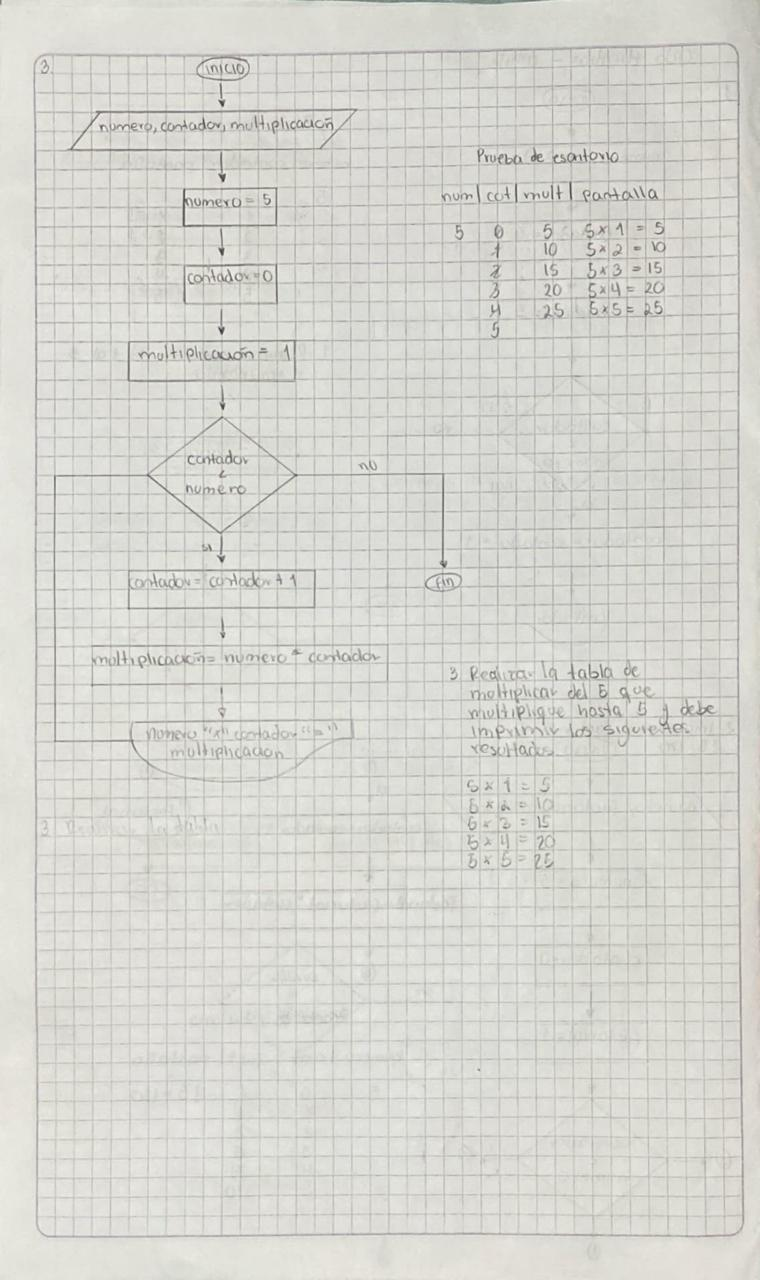 3.
inicio
numero, contador, multiplicación
numero = 5
contador = 0
multiplicación = 1
contador
<
numero
no
si
fin
contador = contador + 1
multiplicación = numero * contador
numero "x" contador "="
multiplicacion
Prueba de escritorio
num | cot | mult | pantalla
5 0 5 5 x 1 = 5
1 10 5 x 2 = 10
2 15 5 x 3 = 15
3 20 5 x 4 = 20
4 25 5 x 5 = 25
5
3. Realizar la tabla de
moltiplicar del 5 que
multiplique hasta 5 y debe
imprimir los siguientes
resultados.
5 x 1 = 5
5 x 2 = 10
5 x 3 = 15
5 x 4 = 20
5 x 5 = 25
3
la tabla